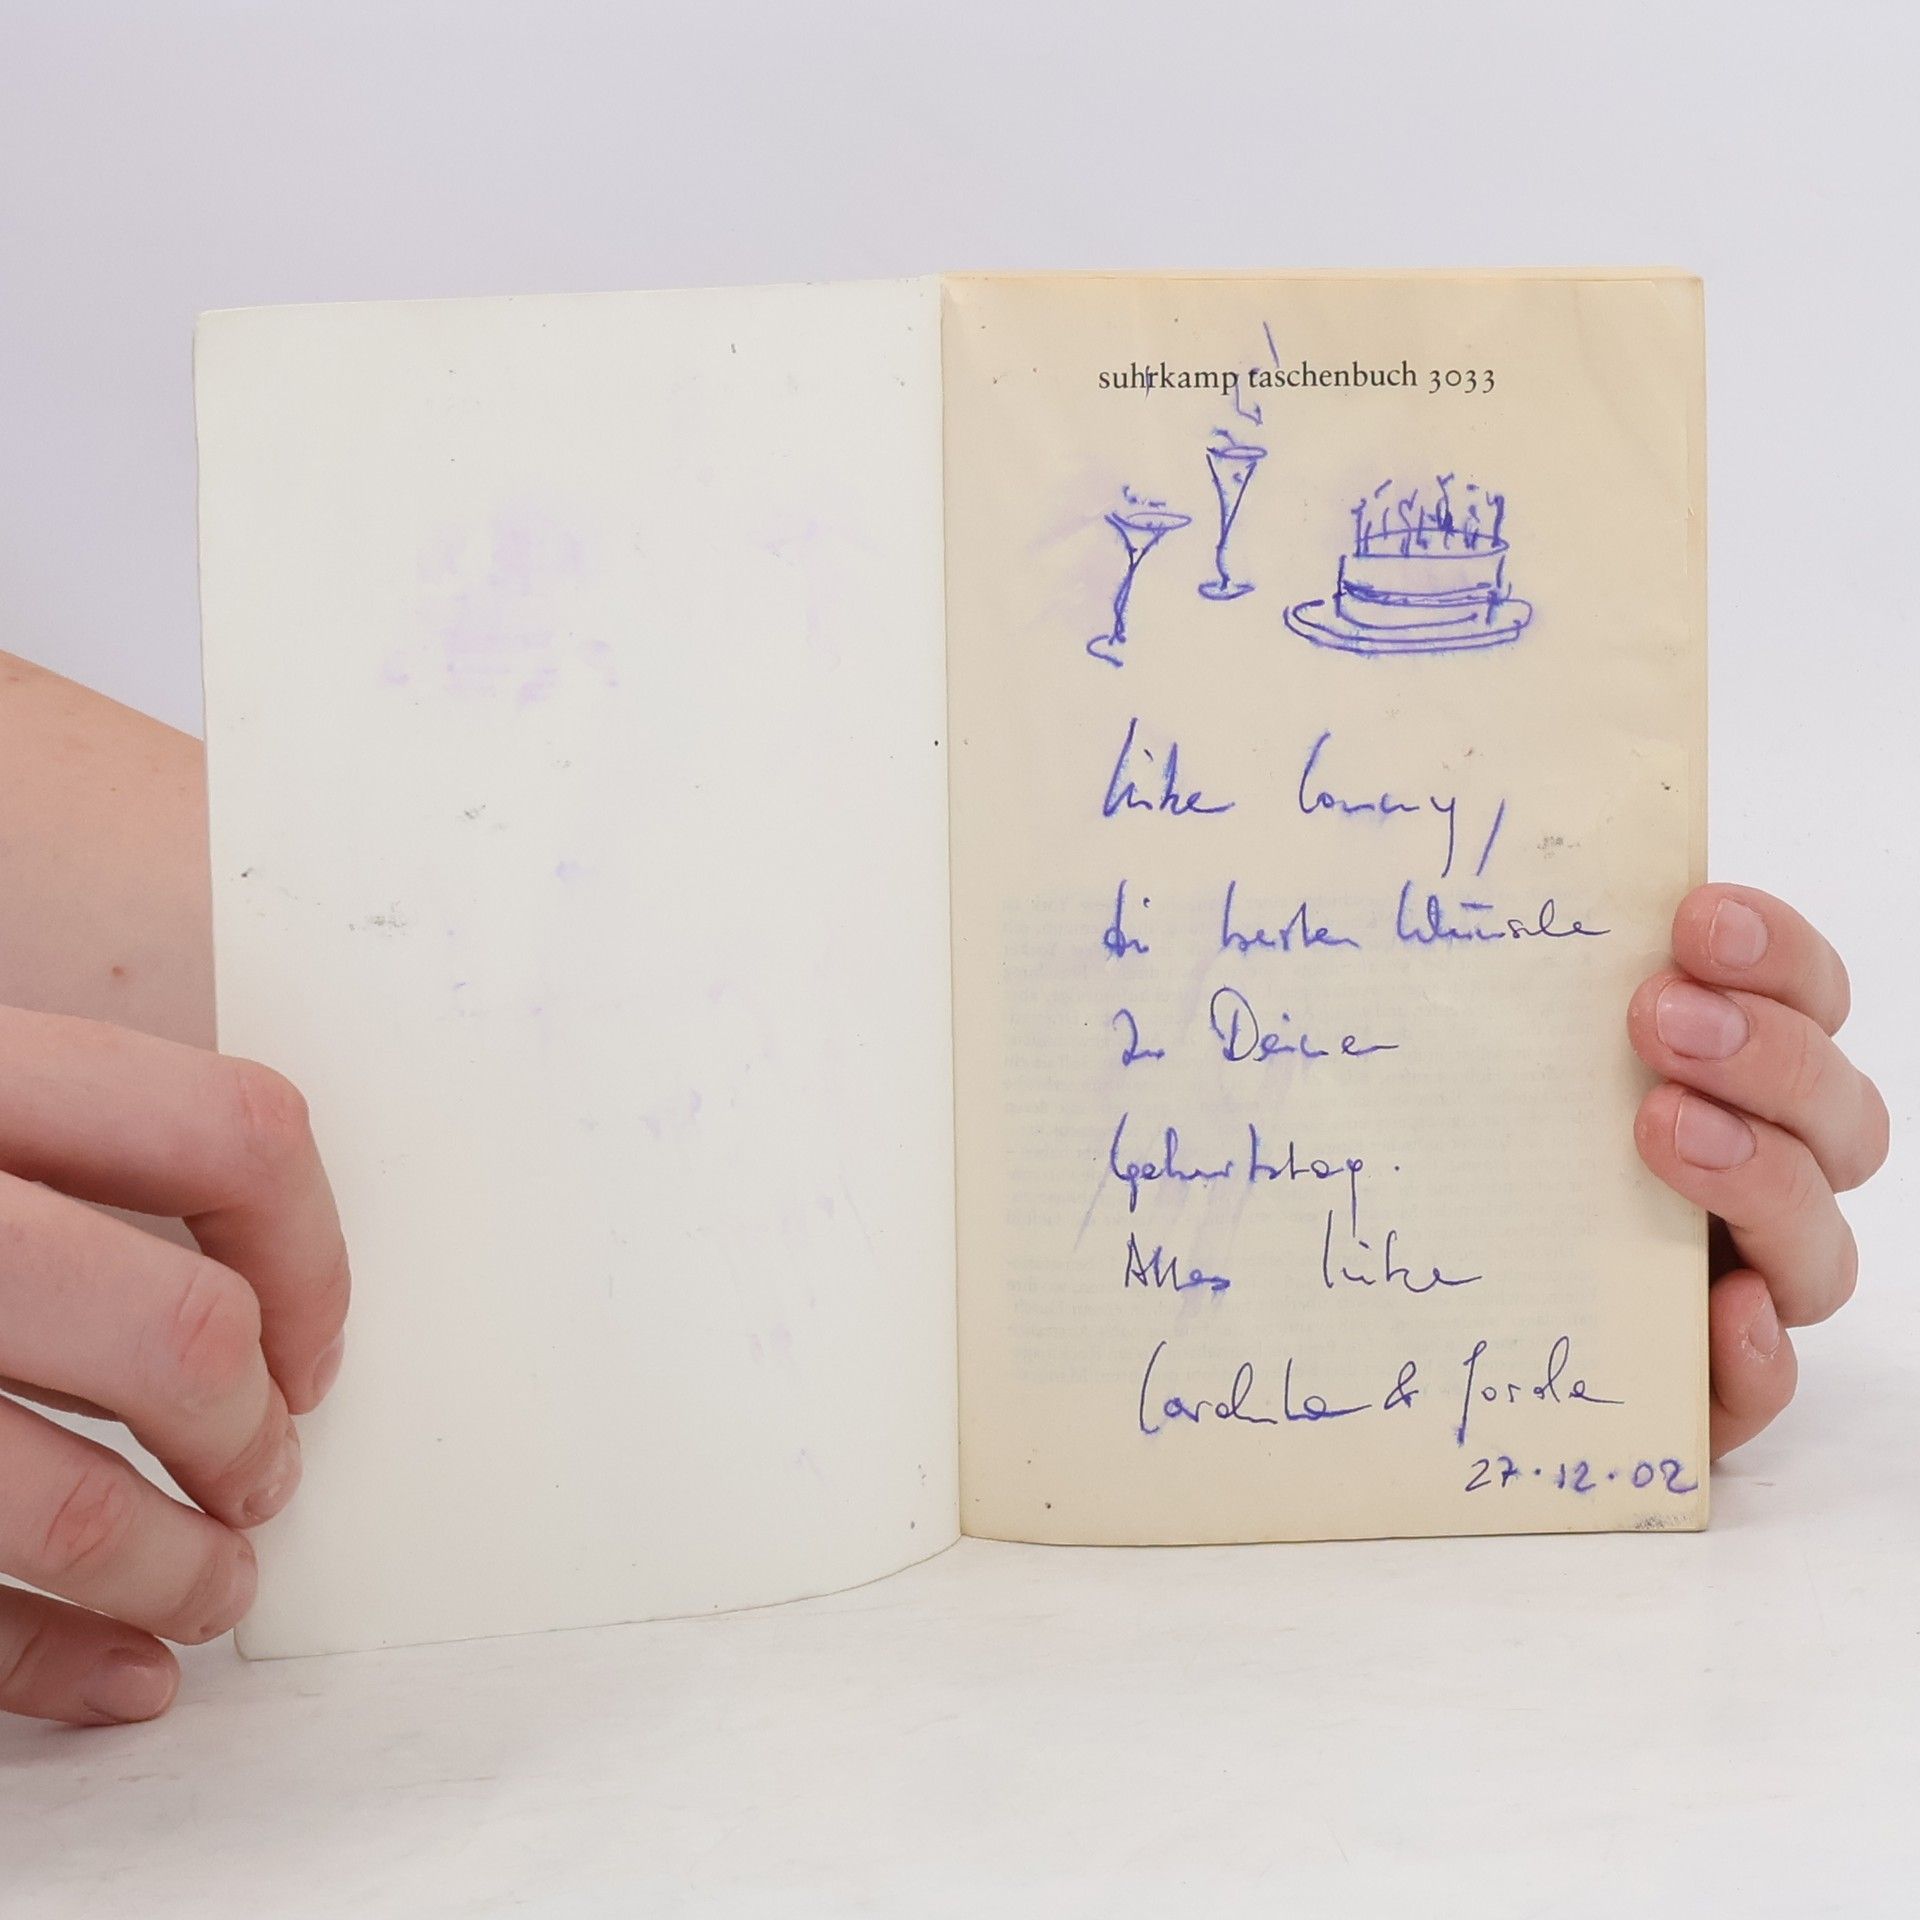 suhrkamp taschenbuch 3033
Liebe Conny,
die besten Wünsche
zu Deinem
Geburtstag.
Alles Liebe
&
27.12.02